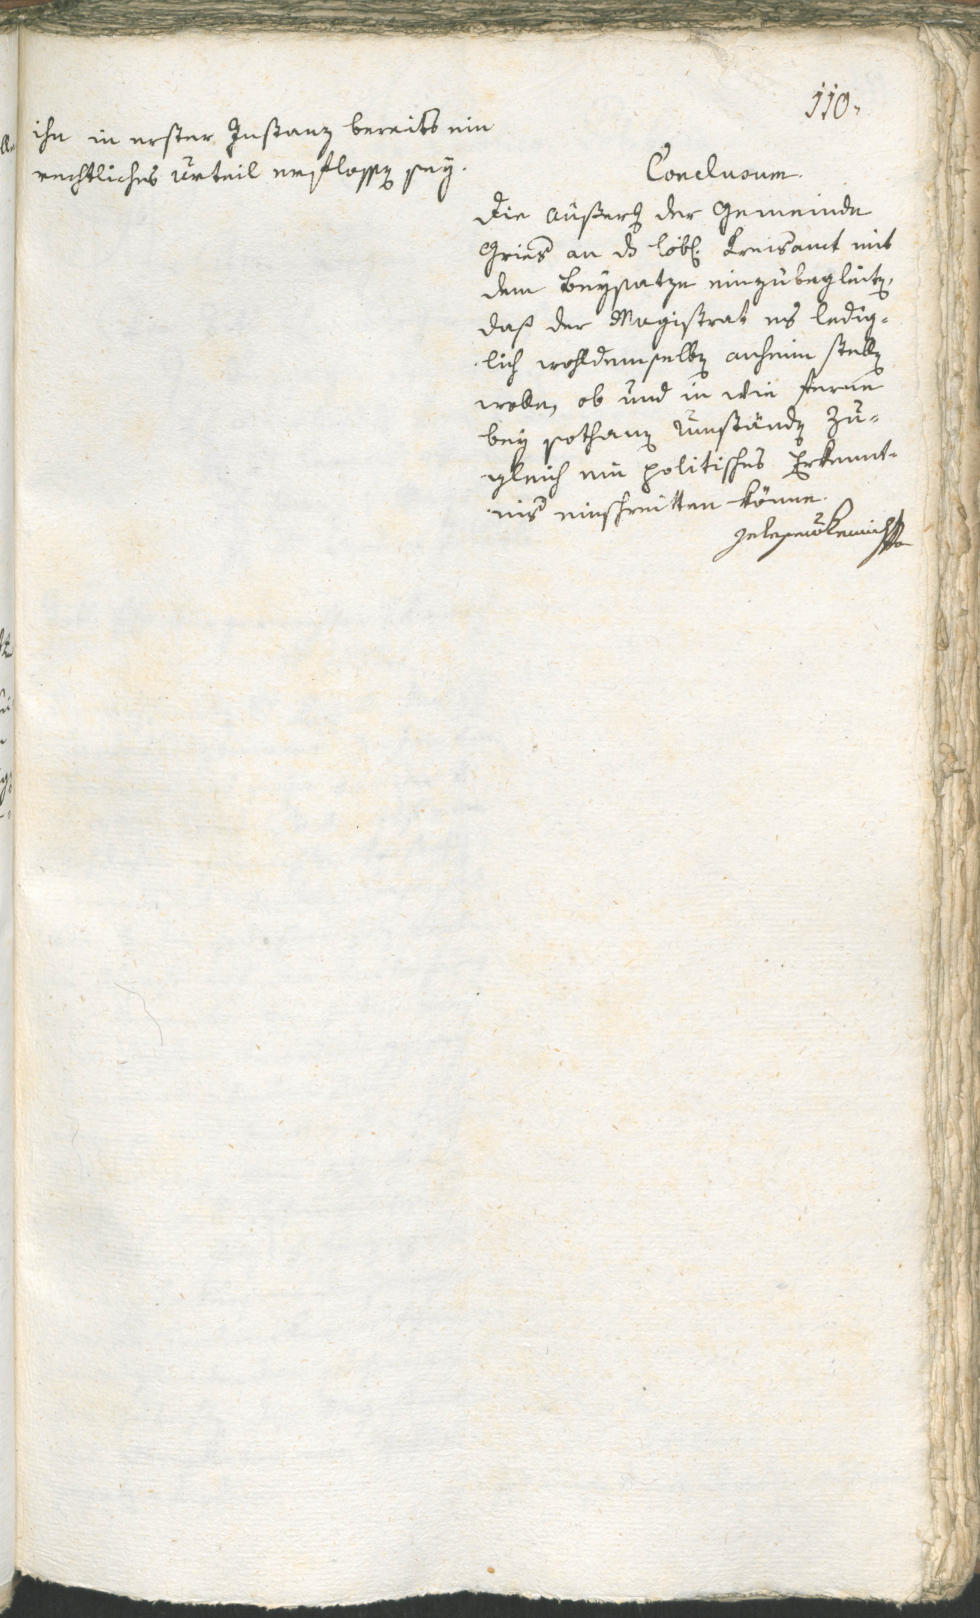 110.
ihn in erster Instanz bereits ein
rechtliches Urteil erflossen sey.
Conclusum.
Die Äußerung der Gemeinde
Gries an das löbl. Kreisamt mit
dem Beysatze einzubegleiten,
daß der Magistrat es ledig-
lich wohldemselben anheim stellen
wolle, ob und in wie ferne
bey sothanen Umständen zu-
gleich ein politisches Erkennt-
nis einschreitten könne.